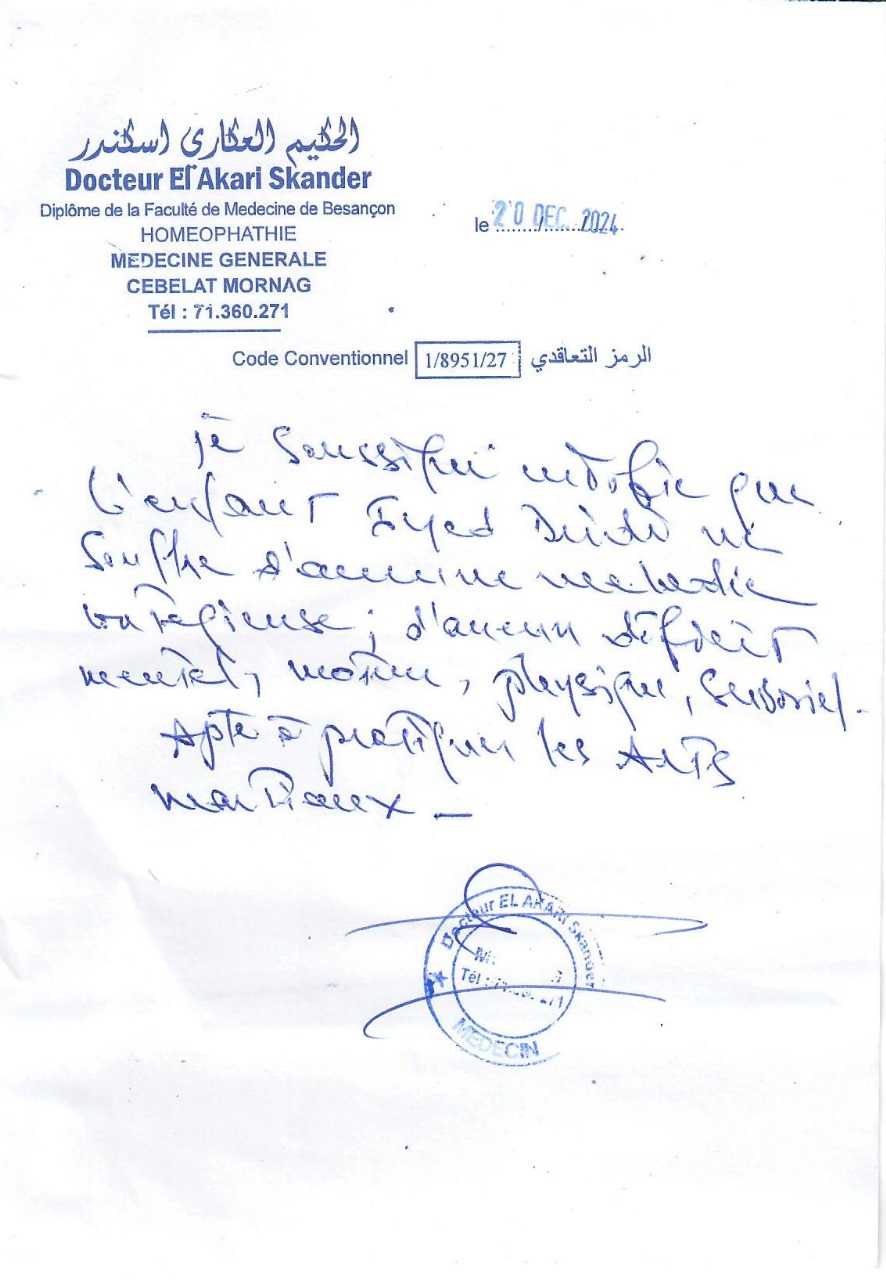 الحكيم العكاري اسكندر
Docteur El Akari Skander
Diplôme de la Faculté de Medecine de Besançon
HOMEOPHATHIE
MEDECINE GENERALE
CEBELAT MORNAG
Tél : 71.360.271
le 20 DEC. 2024
Code Conventionnel 1/8951/27 الرمز التعاقدي
je soussigné certifie que
l'enfant Eyed ne
souffre d'aucune maladie
contagieuse ; d'aucun déficit
mental, moteur, physique, sensoriel.
Apte à pratiquer les Arts
martiaux _
Docteur EL AKARI Skander
Tél : 271
MEDECIN